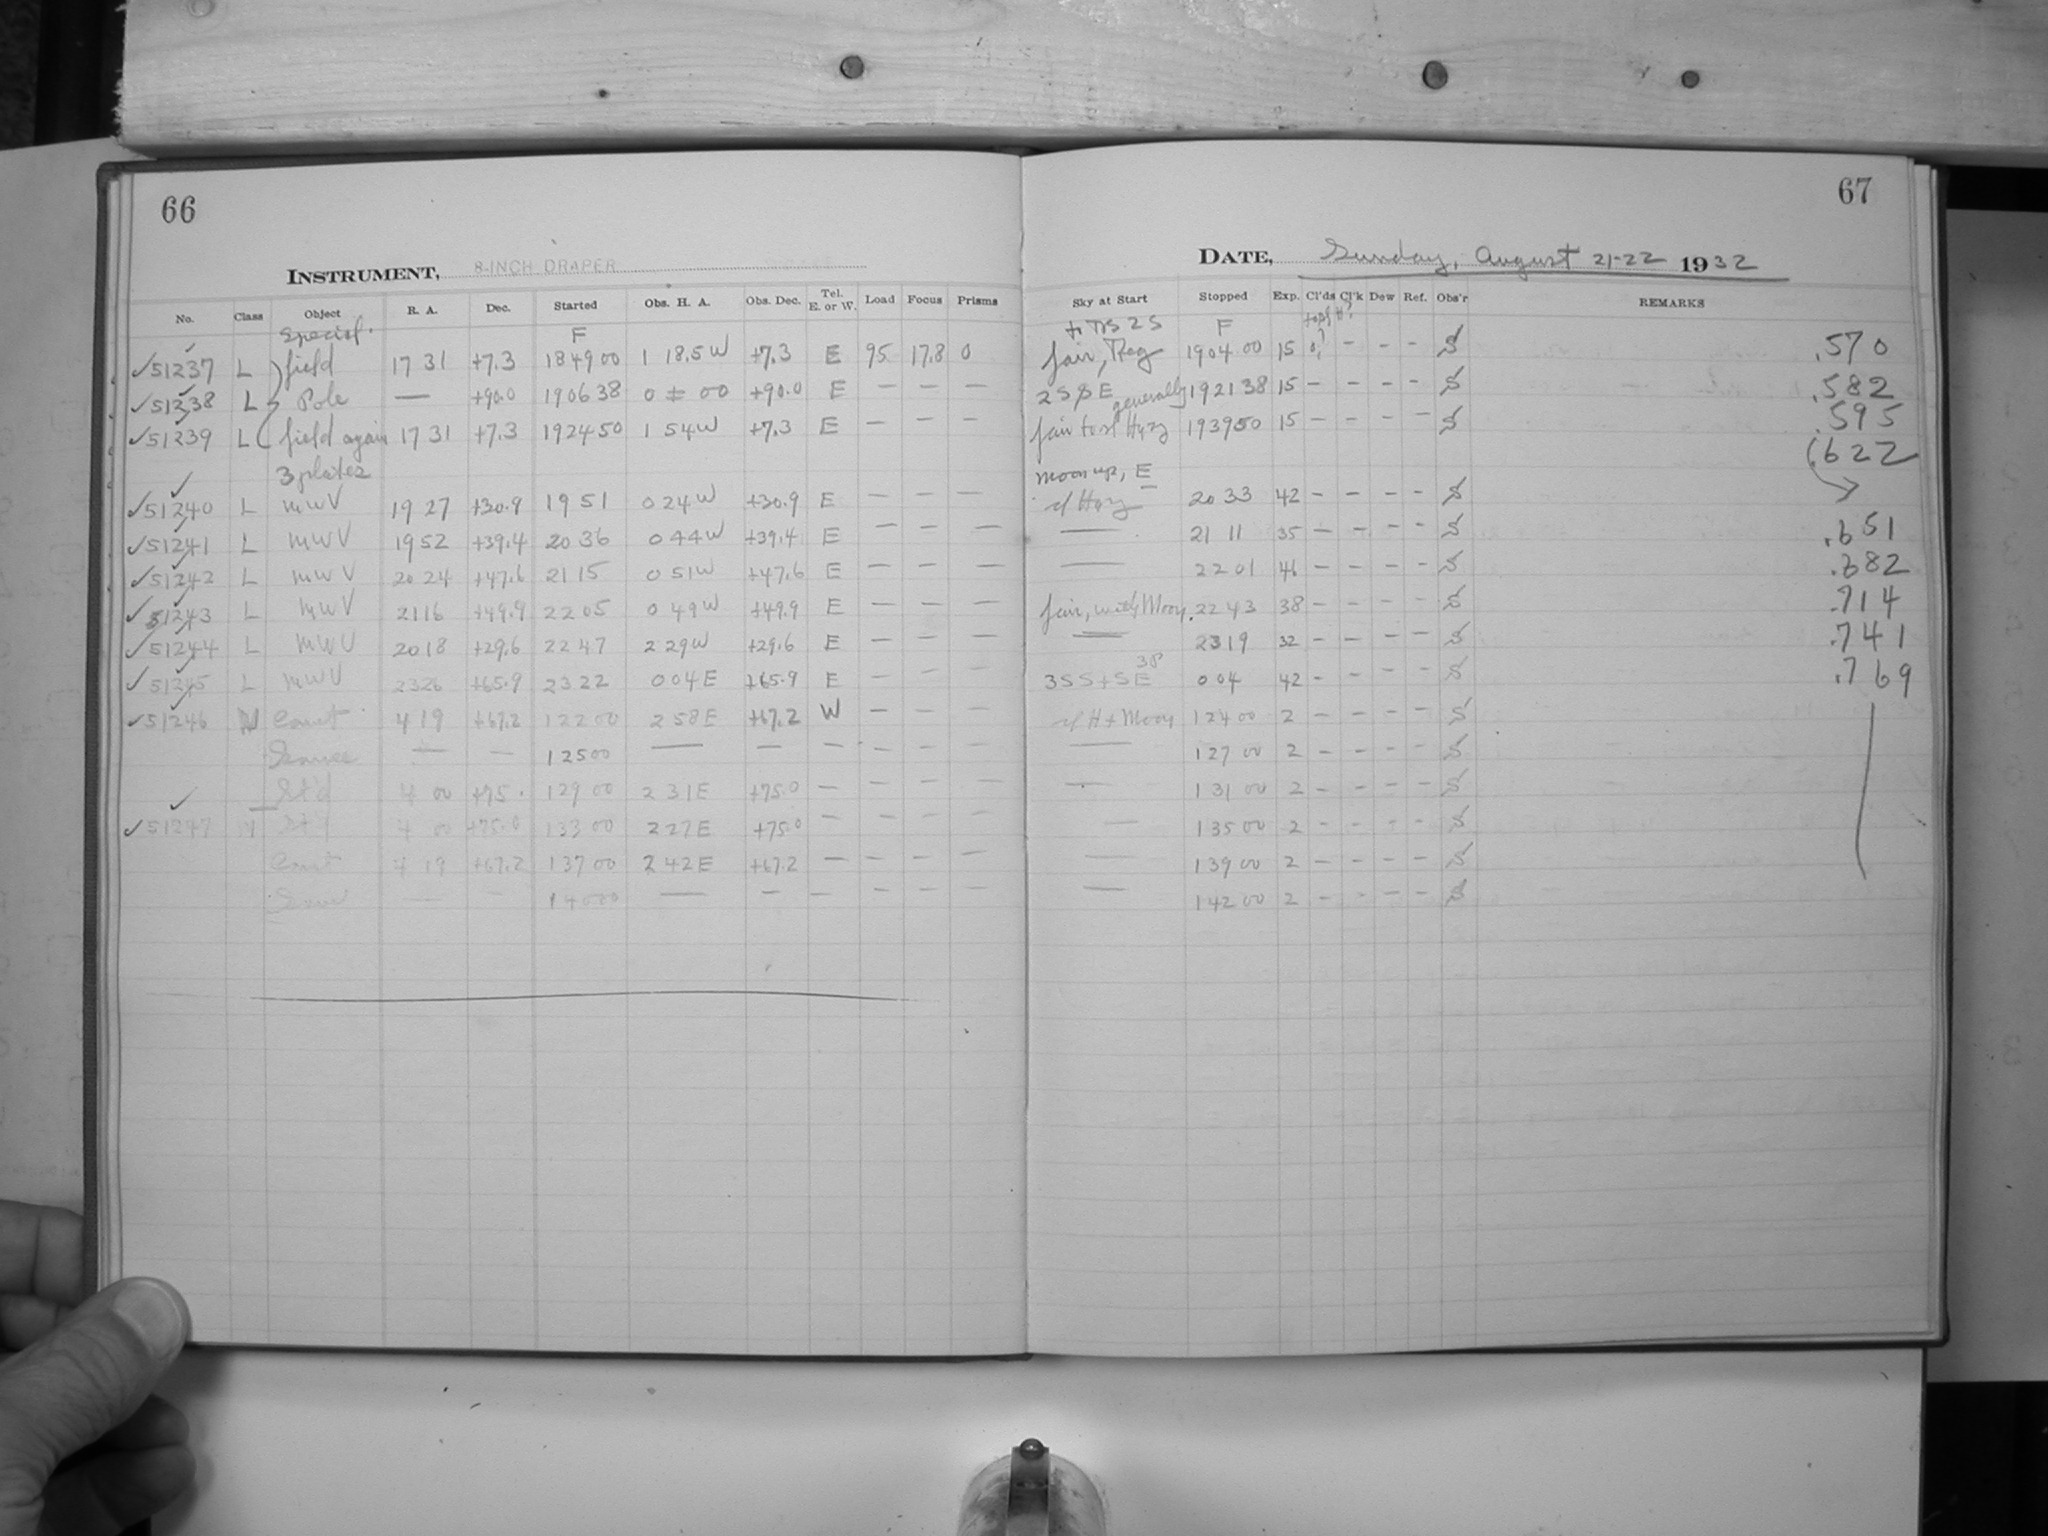 66
INSTRUMENT, 8-INCH DRAPER
No. Class Object R. A. Dec. Started Obs. H. A. Obs. Dec. Tel. E. or W. Load Focus Prisms
Special F
✓51237 L field 17 31 +7.3 18 49 00 1 18.5 W +7.3 E 95 17.8 0
✓51238 L Pole — +90.0 19 06 38 0 ± 00 +90.0 E — — —
✓51239 L field again 17 31 +7.3 19 24 50 1 54 W +7.3 E — — —
3 plates
✓51240 L MWV 19 27 +30.9 19 51 0 24 W +30.9 E — — —
✓51241 L MWV 19 52 +39.4 20 36 0 44 W +39.4 E — — —
✓51242 L MWV 20 24 +47.6 21 15 0 51 W +47.6 E — — —
✓51243 L MWV 21 16 +49.9 22 05 0 49 W +49.9 E — — —
✓51244 L MWV 20 18 +29.6 22 47 2 29 W +29.6 E — — —
✓51245 L MWV 23 26 +65.9 23 22 0 04 E +65.9 E — — —
✓51246 N Comet 4 19 +67.2 1 22 00 2 58 E +67.2 W — — —
— — 1 25 00 — — — — — —
St'd 4 00 +75. 1 29 00 2 31 E +75.0 — — — —
✓51247 4 00 +75.0 1 33 00 2 27 E +75.0
4 19 +67.2 1 37 00 2 42 E +67.2 — — — —
— — 1 40 00 — — — — — —
67
DATE, Sunday, August 21-22 1932
Sky at Start Stopped Exp. Cl'ds Cl'k Dew Ref. Obs'r REMARKS
F
fair, 19 04 00 15 — — — S .570
generally 19 21 38 15 — — — — S .582
fair to 19 39 50 15 — — — — S .595
moon up, E (.622
20 33 42 — — — — S
— 21 11 35 — — — — S .651
— 22 01 46 — — — — S .682
fair, with Moon. 22 43 38 — — — — S .714
— 23 19 32 — — — — S .741
0 04 42 — — — — S .769
1 24 00 2 — — — — S
— 1 27 00 2 — — — — S
— 1 31 00 2 — — — — S
— 1 35 00 2 — — — — S
— 1 39 00 2 — — — — S
— 1 42 00 2 — — — — S